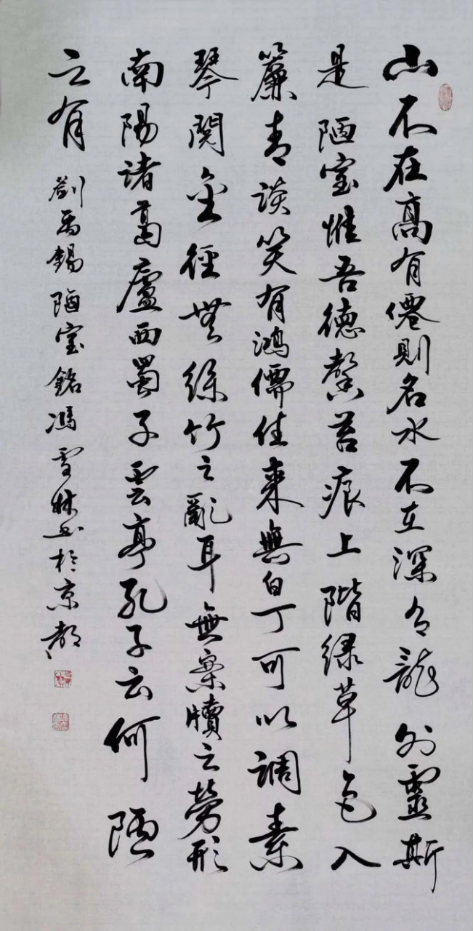 山不在高有僊則名水不在深有龍則靈斯
是陋室惟吾德馨苔痕上階緑草色入
簾青談笑有鴻儒往来無白丁可以調素
琴閲金經無絲竹之亂耳無案牘之勞形
南陽諸葛廬西蜀子雲亭孔子云何陋
之有 劉禹錫陋室銘馮雪林書於京都